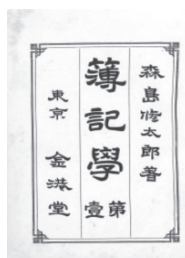 森島修太郎著
簿記學
第壹
東京 金港堂